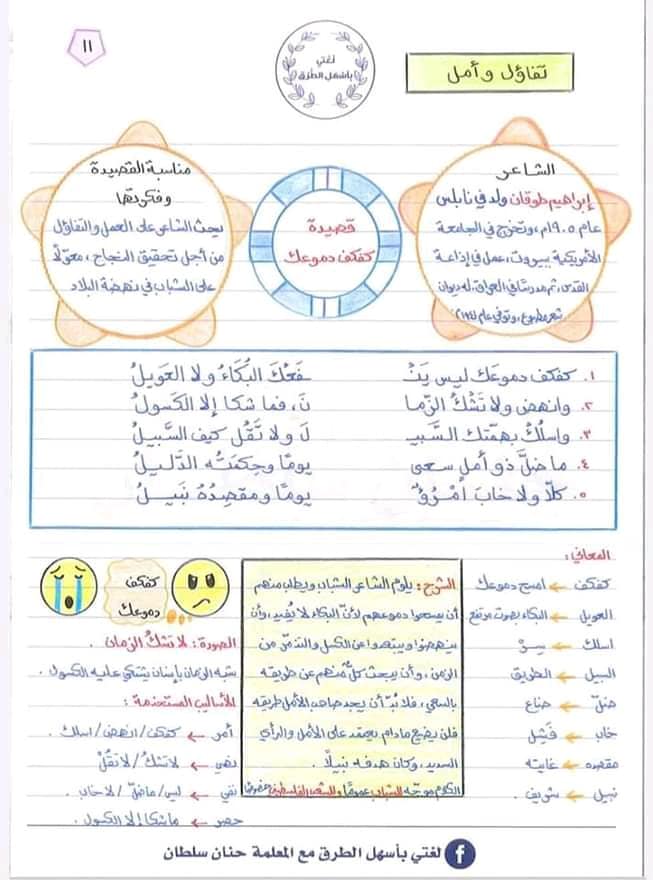 ١١
لغتي
بأسهل الطرق
تفاؤل وأمل
الشاعر
إبراهيم طوقان ولد في نابلس
عام ١٩٠٥م، وتخرج في الجامعة
الأمريكية ببيروت، عمل في إذاعة
القدس، ثم مدرسًا في العراق، له ديوان
شعر مطبوع، وتوفي عام ١٩٤١م
قصيدة
كفكف دموعك
مناسبة القصيدة
وفكرتها
يحث الشاعر على العمل والتفاؤل
من أجل تحقيق النجاح، معوّلًا
على الشباب في نهضة البلاد
١. كفكف دموعَك ليس يَنْـ فَعُكَ البُكَاءُ ولا العَويلُ
٢. وانهض ولا تَشْكُ الزّما نَ، فما شكا إلا الكَسولُ
٣. واسلُكْ بهمّتك السَّبيـ لَ ولا تَقُل كيف السَّبيلُ
٤. ما ضلَّ ذو أملٍ سعى يومًا وحِكمَتُه الدَّليلُ
٥. كلّا ولا خابَ امْرُؤٌ يومًا ومقصِدُهُ نَبيلُ
المعاني:
كفكف ← امسح دموعك
العويل ← البكاء بصوت مرتفع
اسلك ← سِرْ
السبيل ← الطريق
ضلّ ← ضاع
خاب ← فَشِل
مقصده ← غايته
نبيل ← شريف.
الشرح: يلوم الشاعر الشباب ويطلب منهم
أن يمسحوا دموعهم لأنّ البكاء لا يُفيد، وأن
ينهضوا ويبتعدوا عن الكسل والتذمّر من
الزمن، وأن يبحث كلٌّ منهم عن طريقه
بالسعي، فلا بُدّ أن يجد صاحب الأمل طريقه
فلن يضيع مادام يعتمد على الأمل والرأي
السديد، وكان هدفه نبيلًا.
الكلام موجّه للشباب عمومًا وللشعب الفلسطيني خصوصًا
كفكف
دموعك
الصورة: لا تشكُ الزمان.
شبه الزمان بإنسان يشتكي عليه الكسول.
الأساليب المستخدمة:
أمر ← كفكف/ انهض/ اسلك.
نهي ← لا تشكُ/ لا تقُلْ
نفي ← ليس/ ماضلّ/ لا خاب.
حصر ← ماشكا إلا الكسول.
لغتي بأسهل الطرق مع المعلمة حنان سلطان